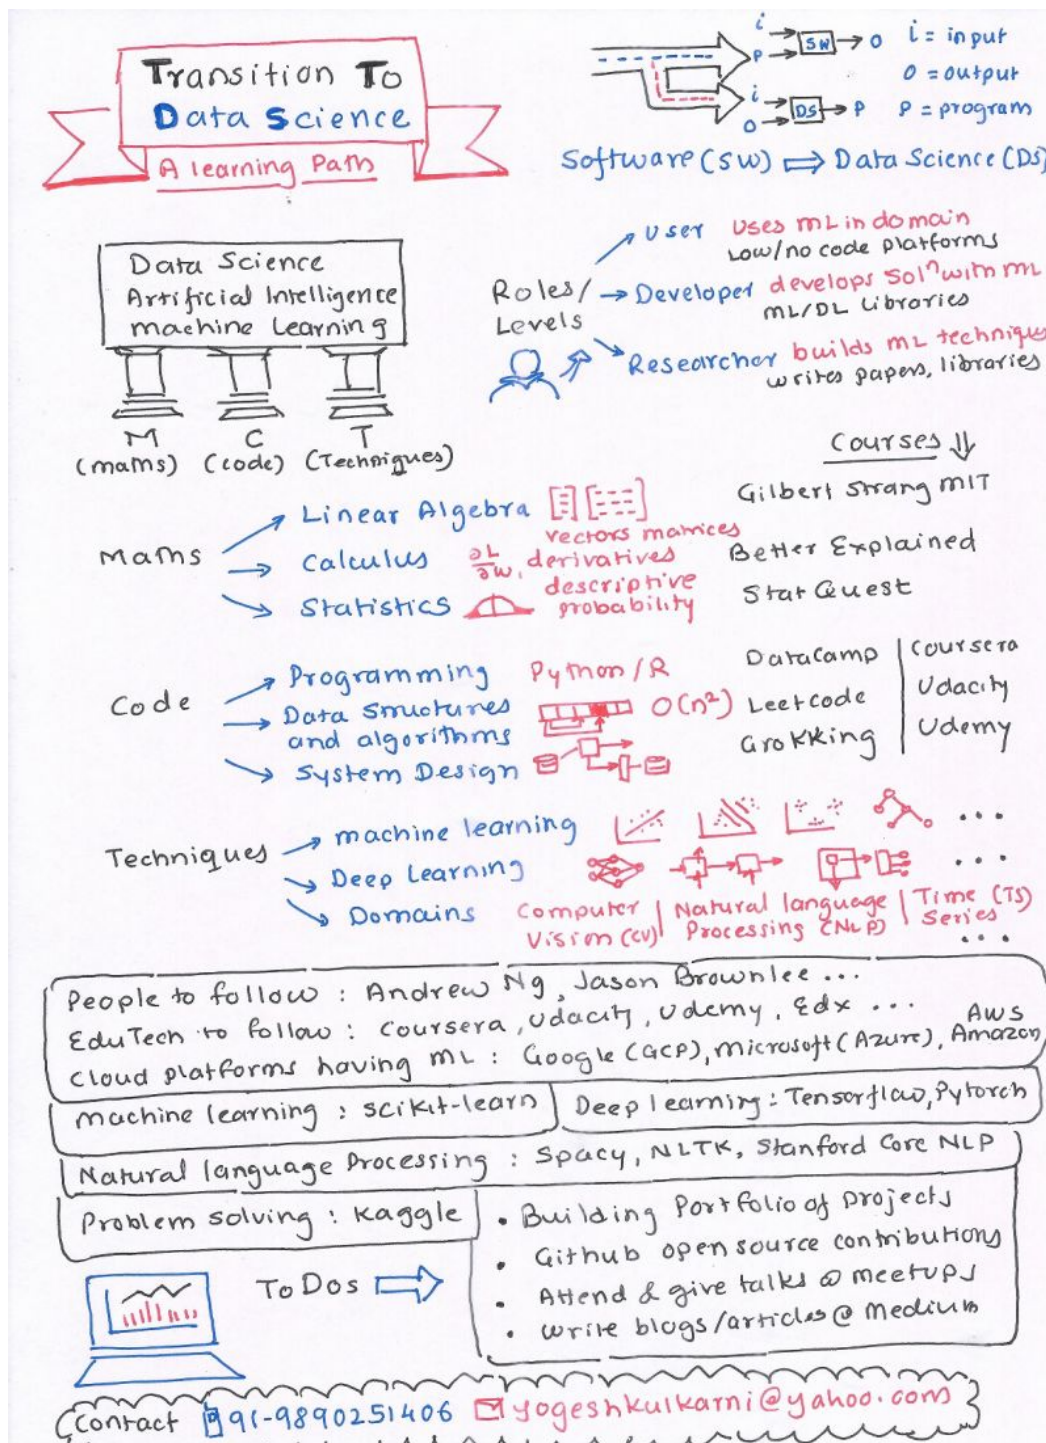 Transition To
Data Science
A learning Path
i
P
SW
O
i
O
DS
P
i = input
O = output
P = program
Software (SW) ⇒ Data Science (DS)
Data Science
Artificial Intelligence
machine Learning
M
C
T
(maths)
(code)
(Techniques)
Roles/
Levels
User uses ML in domain
Low/no code platforms
Developer develops Solⁿ with ML
ML/DL libraries
Researcher builds ML technique
writes papers, libraries
Courses ⇓
Maths
Linear Algebra
vectors matrices
Gilbert Strang MIT
Calculus ∂L/∂w, derivatives
Better Explained
Statistics descriptive
probability
StatQuest
Code
Programming Python / R
Data Structures
and algorithms O(n²)
System Design
DataCamp | Coursera
Leetcode | Udacity
Grokking | Udemy
Techniques
machine learning ...
Deep Learning ...
Domains
Computer
Vision (CV)
Natural language
Processing (NLP)
Time (TS)
Series
...
People to follow : Andrew Ng, Jason Brownlee ...
EduTech to follow : Coursera, Udacity, Udemy, Edx ...
Cloud platforms having ML : Google (GCP), Microsoft (Azure), AWS
Amazon
Machine learning : scikit-learn
Deep learning : Tensorflow, Pytorch
Natural language Processing : Spacy, NLTK, Stanford Core NLP
Problem solving : Kaggle
To Dos ⇒
• Building Portfolio of projects
• Github open source contributions
• Attend & give talks @ meetups
• write blogs/articles @ Medium
Contact 91-9890251406 yogeshkulkarni@yahoo.com